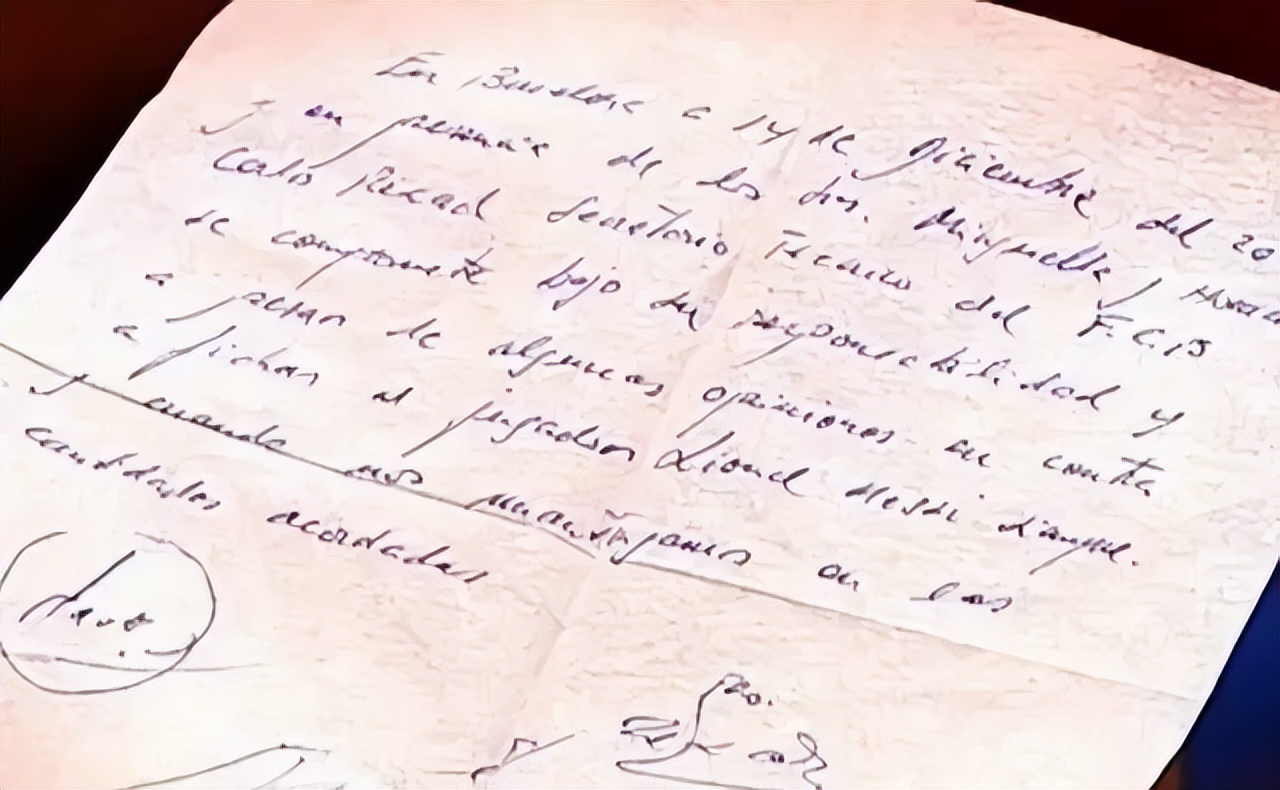 En Barcelona a 14 de Diciembre del 20
y en presencia de los Srs. Minguella y Horacio
Carlos Rexach Secretario Tecnico del F.C.B
se compromete bajo su responsabilidad y
a pesar de algunas opiniones en contra
a fichar al jugador Lionel Messi
y cuando nos mantengamos en las
cantidades acordadas